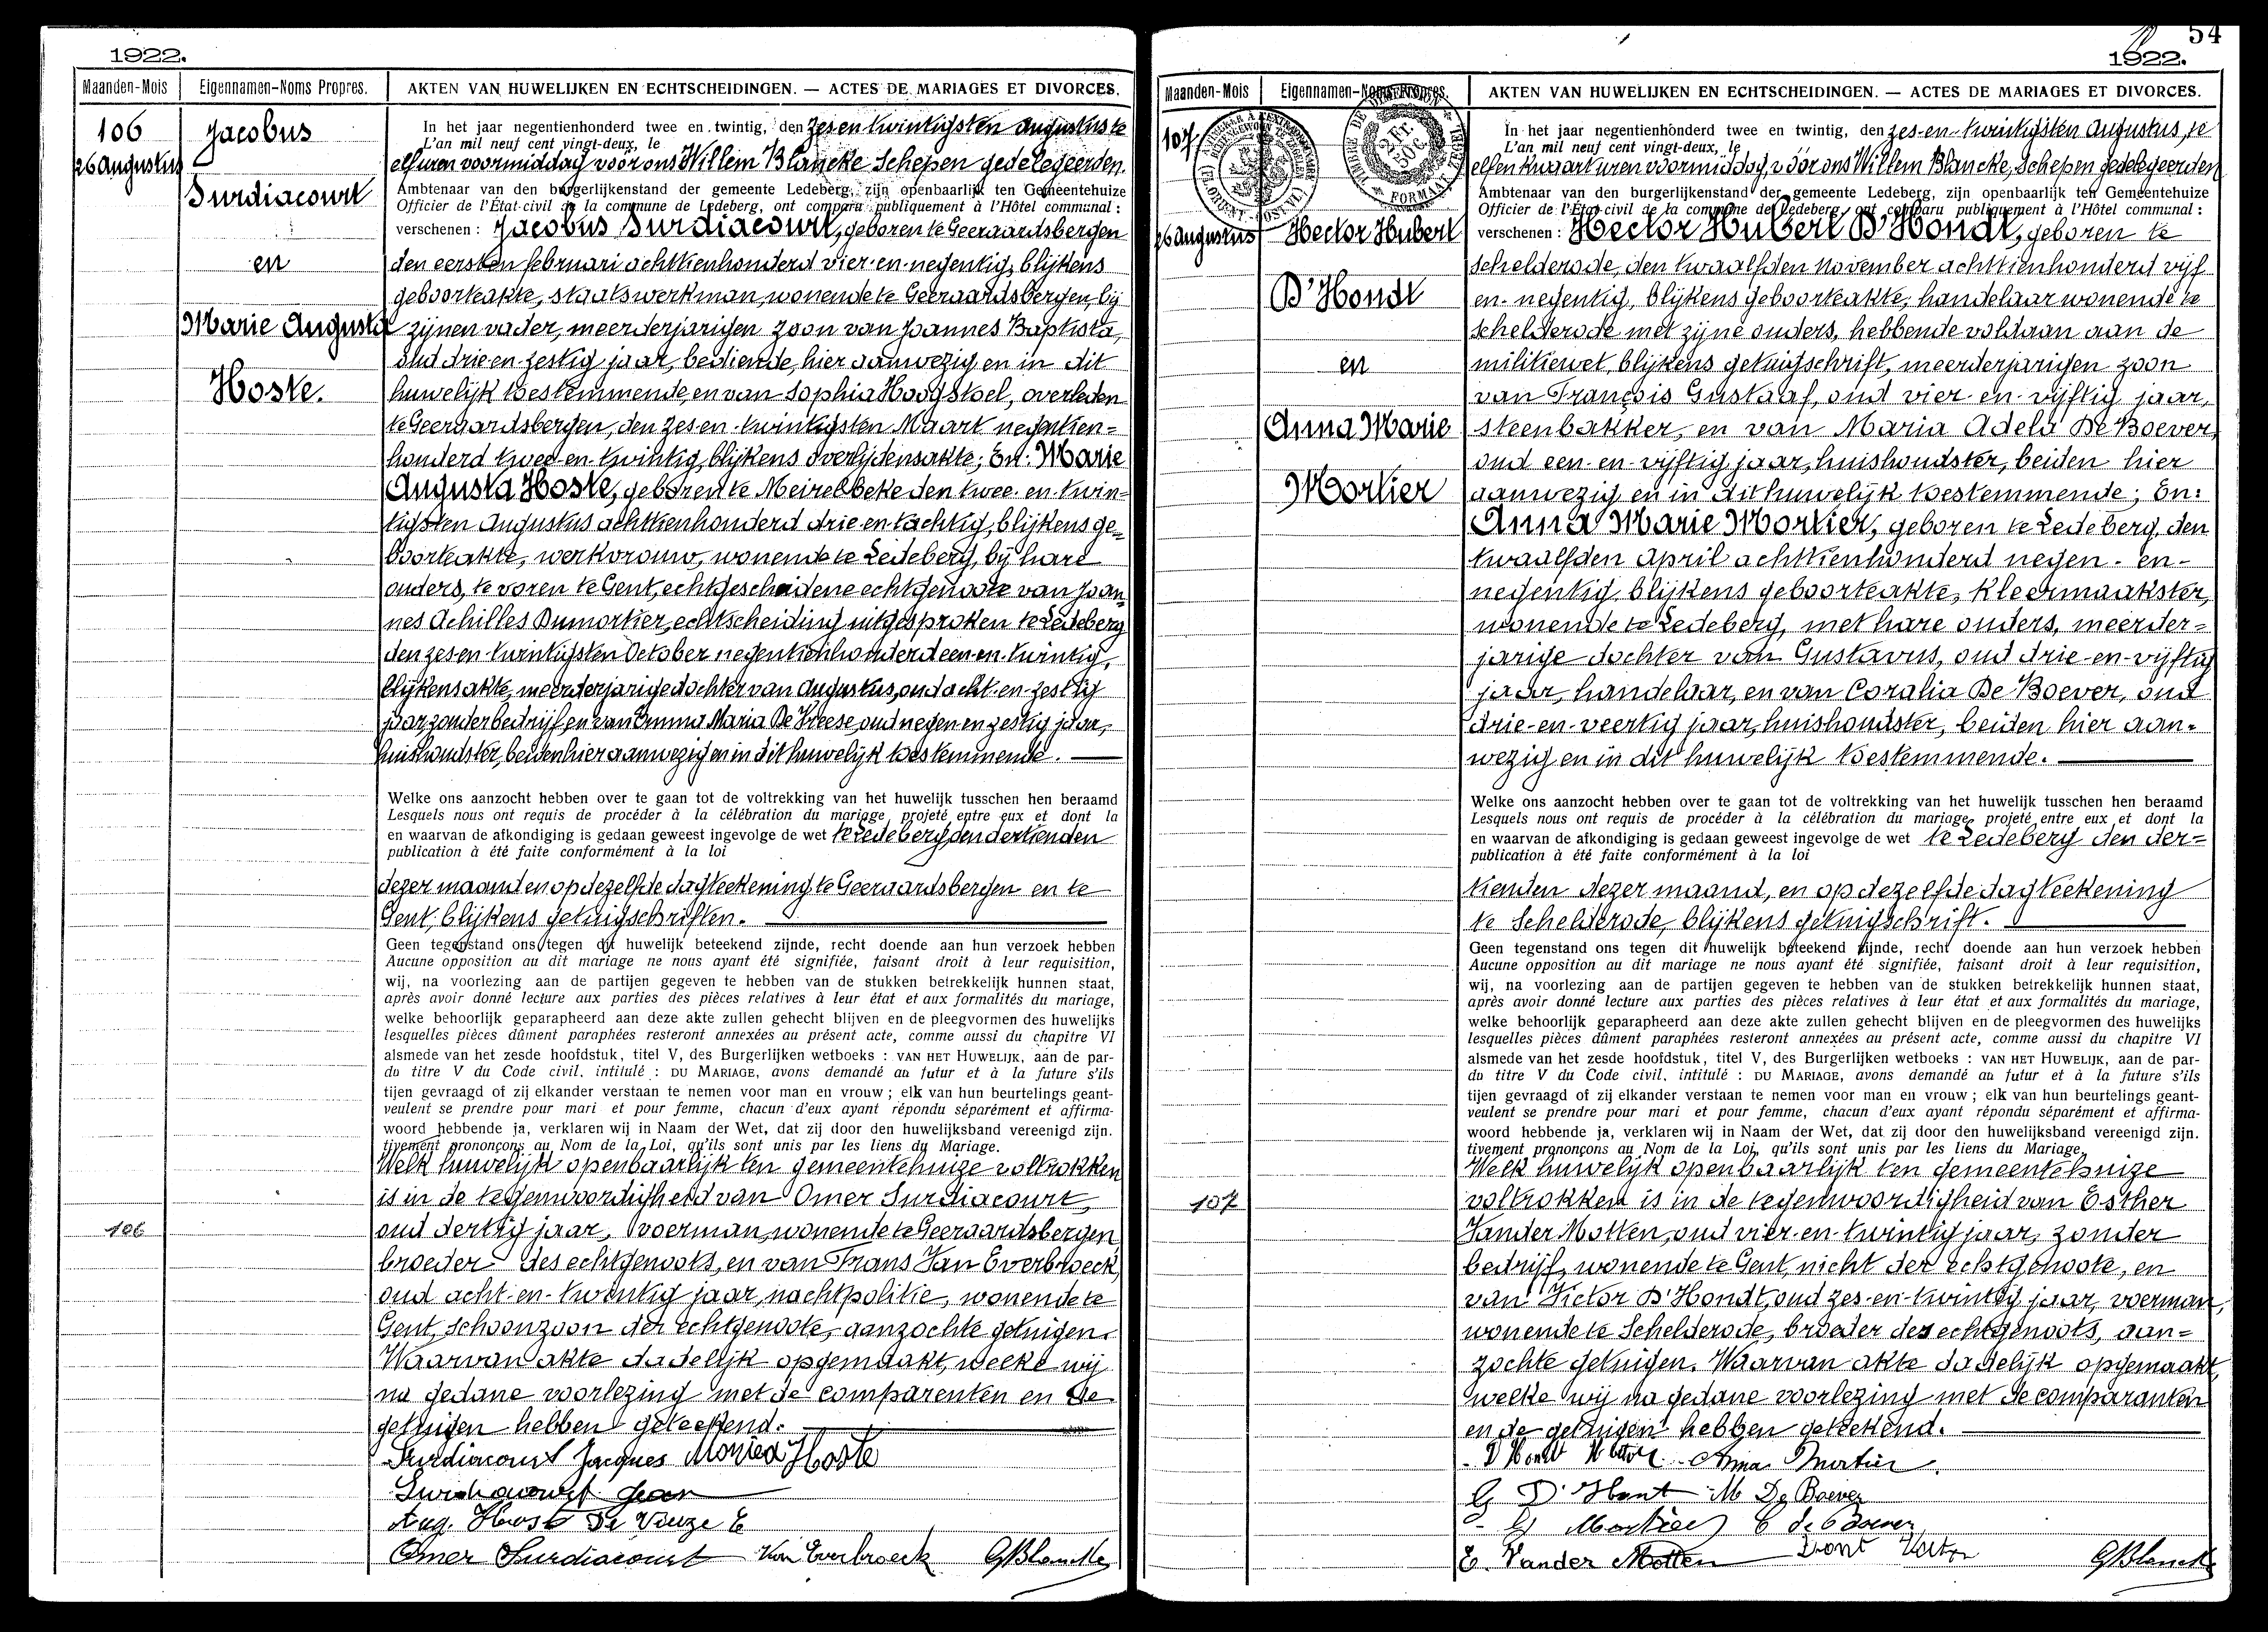 1922.
Maanden-Mois Eigennamen-Noms Propres. AKTEN VAN HUWELIJKEN EN ECHTSCHEIDINGEN. — ACTES DE MARIAGES ET DIVORCES.
106
26 Augustus
Jacobus
Surdiacourt
en
Marie Augusta
Hoste.
In het jaar negentienhonderd twee en twintig, den zes en twintigsten Augustus te
L'an mil neuf cent vingt-deux, le
elf uren voormiddag voor ons Willem Blancke Schepen gedelegeerden.
Ambtenaar van den burgerlijkenstand der gemeente Ledeberg, zijn openbaarlijk ten Gemeentehuize
Officier de l'État-civil de la commune de Ledeberg, ont comparu publiquement à l'Hôtel communal :
verschenen : Jacobus Surdiacourt, geboren te Geeraardsbergen
den eersten februari achttienhonderd vier-en-negentig, blijkens
geboorteakte, staatswerkman, wonende te Geeraardsbergen, bij
zijnen vader, meerderjarigen zoon van Joannes Baptista,
oud drie en zestig jaar, bediende, hier aanwezig en in dit
huwelijk toestemmende, en van Sophia Hoogstoel, overleden
te Geeraardsbergen, den zes en twintigsten Maart negentien-
honderd twee-en-twintig, blijkens overlijdensakte; En: Marie
Augusta Hoste, geboren te Meirelbeke den twee-en-twin-
tigsten Augustus achttienhonderd drie en tachtig, blijkens ge-
boorteakte, werkvrouw, wonende te Ledeberg, bij hare
ouders, te voren te Gent, echtgescheidene echtgenoote van Joan-
nes Achilles Dumortier, echtscheiding uitgesproken te Ledeberg
den zes en twintigsten October negentienhonderd een-en-twintig,
blijkens akte, meerderjarige dochter van Augustus, oud acht-en-zestig
jaar, zonder bedrijf, en van Emma Maria De Vreese, oud negen en zestig jaar,
huishoudster, beiden hier aanwezig en in dit huwelijk toestemmende.
Welke ons aanzocht hebben over te gaan tot de voltrekking van het huwelijk tusschen hen beraamd
Lesquels nous ont requis de procéder à la célébration du mariage projeté entre eux et dont la
en waarvan de afkondiging is gedaan geweest ingevolge de wet te Ledeberg den dertienden
publication à été faite conformément à la loi
dezer maand en op dezelfde dagteekening te Geeraardsbergen en te
Gent, blijkens getuigschriften.
Geen tegenstand ons tegen dit huwelijk beteekend zijnde, recht doende aan hun verzoek hebben
Aucune opposition au dit mariage ne nous ayant été signifiée, faisant droit à leur requisition,
wij, na voorlezing aan de partijen gegeven te hebben van de stukken betrekkelijk hunnen staat,
après avoir donné lecture aux parties des pièces relatives à leur état et aux formalités du mariage,
welke behoorlijk geparapheerd aan deze akte zullen gehecht blijven en de pleegvormen des huwelijks
lesquelles pièces dûment paraphées resteront annexées au présent acte, comme aussi du chapitre VI
alsmede van het zesde hoofdstuk, titel V, des Burgerlijken wetboeks : VAN HET HUWELIJK, aan de par-
du titre V du Code civil, intitulé : DU MARIAGE, avons demandé au futur et à la future s'ils
tijen gevraagd of zij elkander verstaan te nemen voor man en vrouw ; elk van hun beurtelings geant-
veulent se prendre pour mari et pour femme, chacun d'eux ayant répondu séparément et affirma-
woord hebbende ja, verklaren wij in Naam der Wet, dat zij door den huwelijksband vereenigd zijn.
tivement prononçons au Nom de la Loi, qu'ils sont unis par les liens du Mariage.
Welk huwelijk openbaarlijk ten gemeentehuize voltrokken
is in de tegenwoordigheid van Omer Surdiacourt,
106 oud dertig jaar, voerman, wonende te Geeraardsbergen
broeder des echtgenoots, en van Frans Van Everbroeck,
oud acht-en-twintig jaar, nachtpolitie, wonende te
Gent, schoonzoon der echtgenoote, aanzochte getuigen.
Waarvan akte dadelijk opgemaakt, welke wij
na gedane voorlezing met de comparenten en de
getuigen hebben geteekend.
Surdiacourt Jacques Monica Hoste
Surdiacourt Jean
Aug. Host De Vreze E
Omer Surdiacourt Van Everbroeck GBlancke
54
1922.
Maanden-Mois Eigennamen-Noms Propres. AKTEN VAN HUWELIJKEN EN ECHTSCHEIDINGEN. — ACTES DE MARIAGES ET DIVORCES.
107
26 Augustus
Hector Hubert
D'Hondt
en
Anna Marie
Mortier
In het jaar negentienhonderd twee en twintig, den zes-en-twintigsten Augustus, te
L'an mil neuf cent vingt-deux, le
elf en kwaart uren voormiddag, voor ons Willem Blancke, Schepen gedelegeerden
Ambtenaar van den burgerlijkenstand der gemeente Ledeberg, zijn openbaarlijk ten Gemeentehuize
Officier de l'État-civil de la commune de Ledeberg, ont comparu publiquement à l'Hôtel communal :
verschenen : Hector Hubert D'Hondt, geboren te
Schelderode, den twaalfden November achttienhonderd vijf
en-negentig, blijkens geboorteakte, handelaar wonende te
Schelderode met zijne ouders, hebbende voldaan aan de
militiewet, blijkens getuigschrift, meerderjarigen zoon
van François Gustaaf, oud vier-en-vijftig jaar,
steenbakker, en van Maria Adela De Boever,
oud een-en-vijftig jaar, huishoudster, beiden hier
aanwezig en in dit huwelijk toestemmende; En:
Anna Marie Mortier, geboren te Ledeberg, den
twaalfden April achttienhonderd negen-en-
negentig, blijkens geboorteakte, kleermaakster,
wonende te Ledeberg, met hare ouders, meerder-
jarige dochter van Gustavus, oud drie-en-vijftig
jaar, handelaar, en van Coralia De Boever, oud
drie-en-veertig jaar, huishoudster, beiden hier aan-
wezig en in dit huwelijk toestemmende.
Welke ons aanzocht hebben over te gaan tot de voltrekking van het huwelijk tusschen hen beraamd
Lesquels nous ont requis de procéder à la célébration du mariage projeté entre eux et dont la
en waarvan de afkondiging is gedaan geweest ingevolge de wet te Ledeberg den der-
publication à été faite conformément à la loi
tienden dezer maand, en op dezelfde dagteekening
te Schelderode, blijkens getuigschrift.
Geen tegenstand ons tegen dit huwelijk beteekend zijnde, recht doende aan hun verzoek hebben
Aucune opposition au dit mariage ne nous ayant été signifiée, faisant droit à leur requisition,
wij, na voorlezing aan de partijen gegeven te hebben van de stukken betrekkelijk hunnen staat,
après avoir donné lecture aux parties des pièces relatives à leur état et aux formalités du mariage,
welke behoorlijk geparapheerd aan deze akte zullen gehecht blijven en de pleegvormen des huwelijks
lesquelles pièces dûment paraphées resteront annexées au présent acte, comme aussi du chapitre VI
alsmede van het zesde hoofdstuk, titel V, des Burgerlijken wetboeks : VAN HET HUWELIJK, aan de par-
du titre V du Code civil, intitulé : DU MARIAGE, avons demandé au futur et à la future s'ils
tijen gevraagd of zij elkander verstaan te nemen voor man en vrouw ; elk van hun beurtelings geant-
veulent se prendre pour mari et pour femme, chacun d'eux ayant répondu séparément et affirma-
woord hebbende ja, verklaren wij in Naam der Wet, dat zij door den huwelijksband vereenigd zijn.
tivement prononçons au Nom de la Loi, qu'ils sont unis par les liens du Mariage.
Welk huwelijk openbaarlijk ten gemeentehuize
107 voltrokken is in de tegenwoordigheid van Esther
Vander Motten, oud vier-en-twintig jaar, zonder
bedrijf, wonende te Gent, nicht der echtgenoote, en
van Victor D'Hondt, oud zes-en-twintig jaar, voerman,
wonende te Schelderode, broeder des echtgenoots, aan-
zochte getuigen. Waarvan akte dadelijk opgemaakt,
welke wij na gedane voorlezing met de comparanten
en de getuigen hebben geteekend.
D'Hondt Hector Anna Mortier
G D'Hont M De Boever
G Mortier C de Boever
E. Vander Motten Dont Victor GBlancke